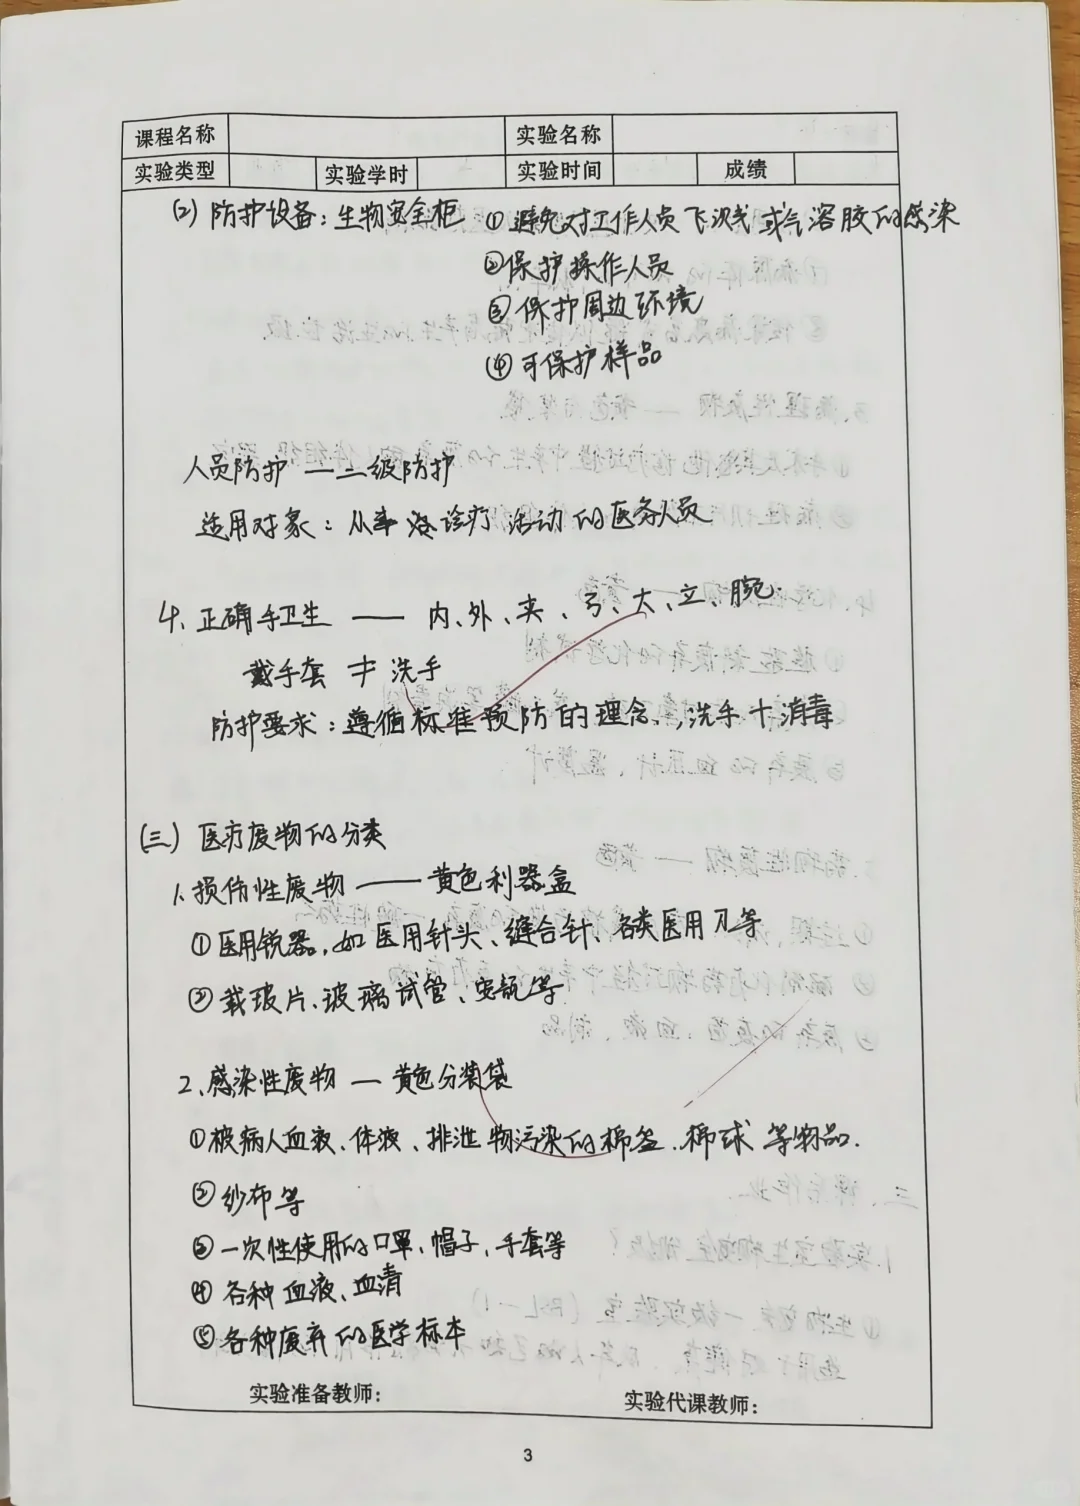 课程名称 实验名称
实验类型 实验学时 实验时间 成绩
(2) 防护设备：生物安全柜 ①避免对工作人员飞溅或气溶胶的感染
②保护操作人员
③保护周边环境
④可保护样品
人员防护 — 二级防护
适用对象：从事 诊疗活动的医务人员
4、正确手卫生 —— 内、外、夹、弓、大、立、腕
戴手套 ≠ 洗手
防护要求：遵循标准预防的理念，洗手+消毒
(三) 医疗废物的分类
1、损伤性废物 —— 黄色利器盒
①医用锐器，如医用针头、缝合针、各类医用刀等
②载玻片、玻璃试管、安瓿等
2、感染性废物 — 黄色分装袋
①被病人血液、体液、排泄物污染的棉签、棉球等物品.
②纱布等
③一次性使用的口罩、帽子、手套等
④各种血液、血清
⑤各种废弃的医学标本
实验准备教师： 实验代课教师：
3